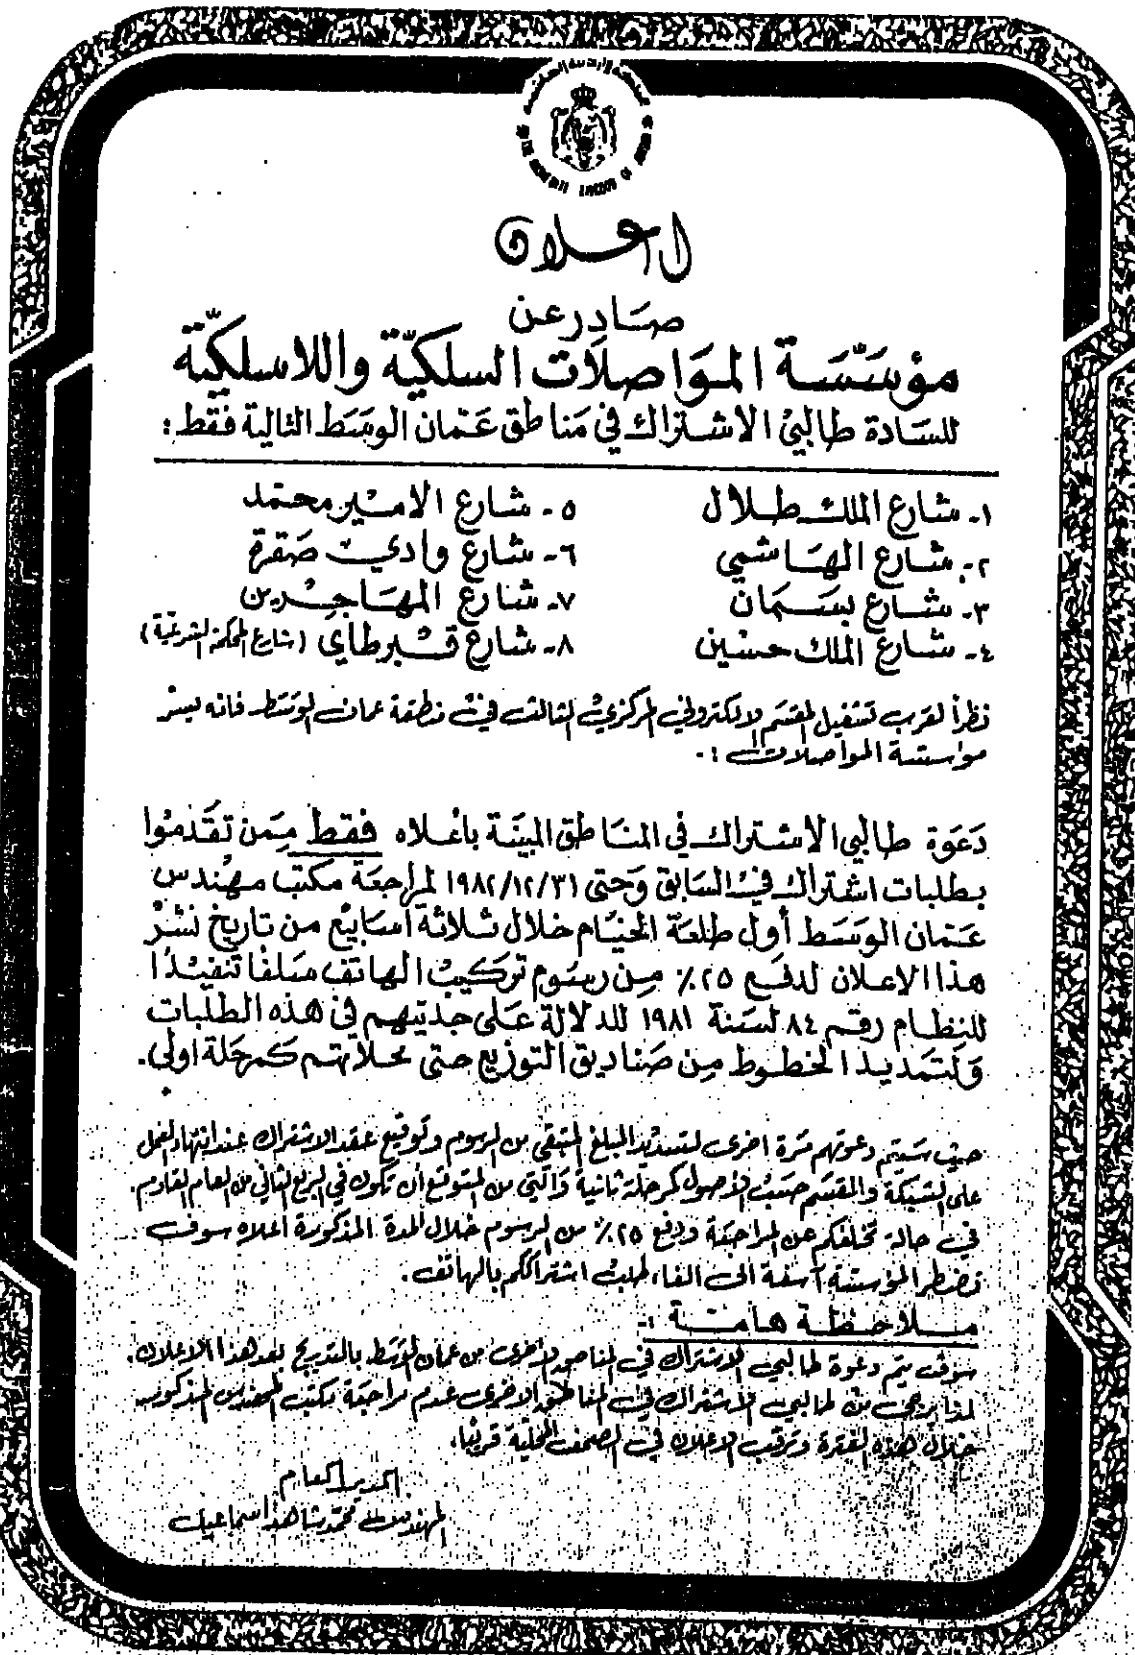 المملكة الأردنية الهاشمية
اعلان
صادر عن
مؤسسة المواصلات السلكية واللاسلكية
للسادة طالبي الاشتراك في مناطق عمان الوسط التالية فقط :
١- شارع الملك طلال
٢- شارع الهاشمي
٣- شارع بسمان
٤- شارع الملك حسين
٥- شارع الامير محمد
٦- شارع وادي صقرة
٧- شارع المهاجرين
٨- شارع قبرطاي (شارع المحكمة الشرعية)
نظراً لقرب تشغيل المقسم الالكتروني المركزي الثالث في منطقة عمان الوسط فانه يسر
مؤسسة المواصلات :-
دعوة طالبي الاشتراك في المناطق المبينة باعلاه فقط ممن تقدموا
بطلبات اشتراك في السابق وحتى ١٩٨٢/١٢/٣١ لمراجعة مكتب مهندس
عمان الوسط أول طلعة الخيام خلال ثلاثة اسابيع من تاريخ نشر
هذا الاعلان لدفع ٢٥٪ من رسوم تركيب الهاتف سلفا تنفيذا
للنظام رقم ٨٤ لسنة ١٩٨١ للدلالة على جديتهم في هذه الطلبات
ولتمديد الخطوط من صناديق التوزيع حتى محلاتهم كمرحلة اولى.
حيث سيتم دعوتهم مرة اخرى لتسديد المبلغ المتبقي من الرسوم وتوقيع عقد الاشتراك عند انتهاء العمل
على الشبكة والمقسم حسب الاصول كمرحلة ثانية والتي من المتوقع أن تكون في الربع الثاني من العام القادم.
في حالة تخلفكم عن المراجعة ودفع ٢٥٪ من الرسوم خلال المدة المذكورة اعلاه سوف
تضطر المؤسسة آسفة الى الغاء طلب اشتراككم بالهاتف.
ملاحظة هامة :-
سوف يتم دعوة طالبي الاشتراك في المناطق الاخرى من عمان الوسط بالتدريج بعد هذا الاعلان.
لذا يرجى من طالبي الاشتراك في المناطق الاخرى عدم مراجعة مكتب المهندس المذكور
خلال هذه الفترة وترقب الاعلان في الصحف المحلية قريبا.
المدير العام
المهندس محمد شاهد اسماعيل